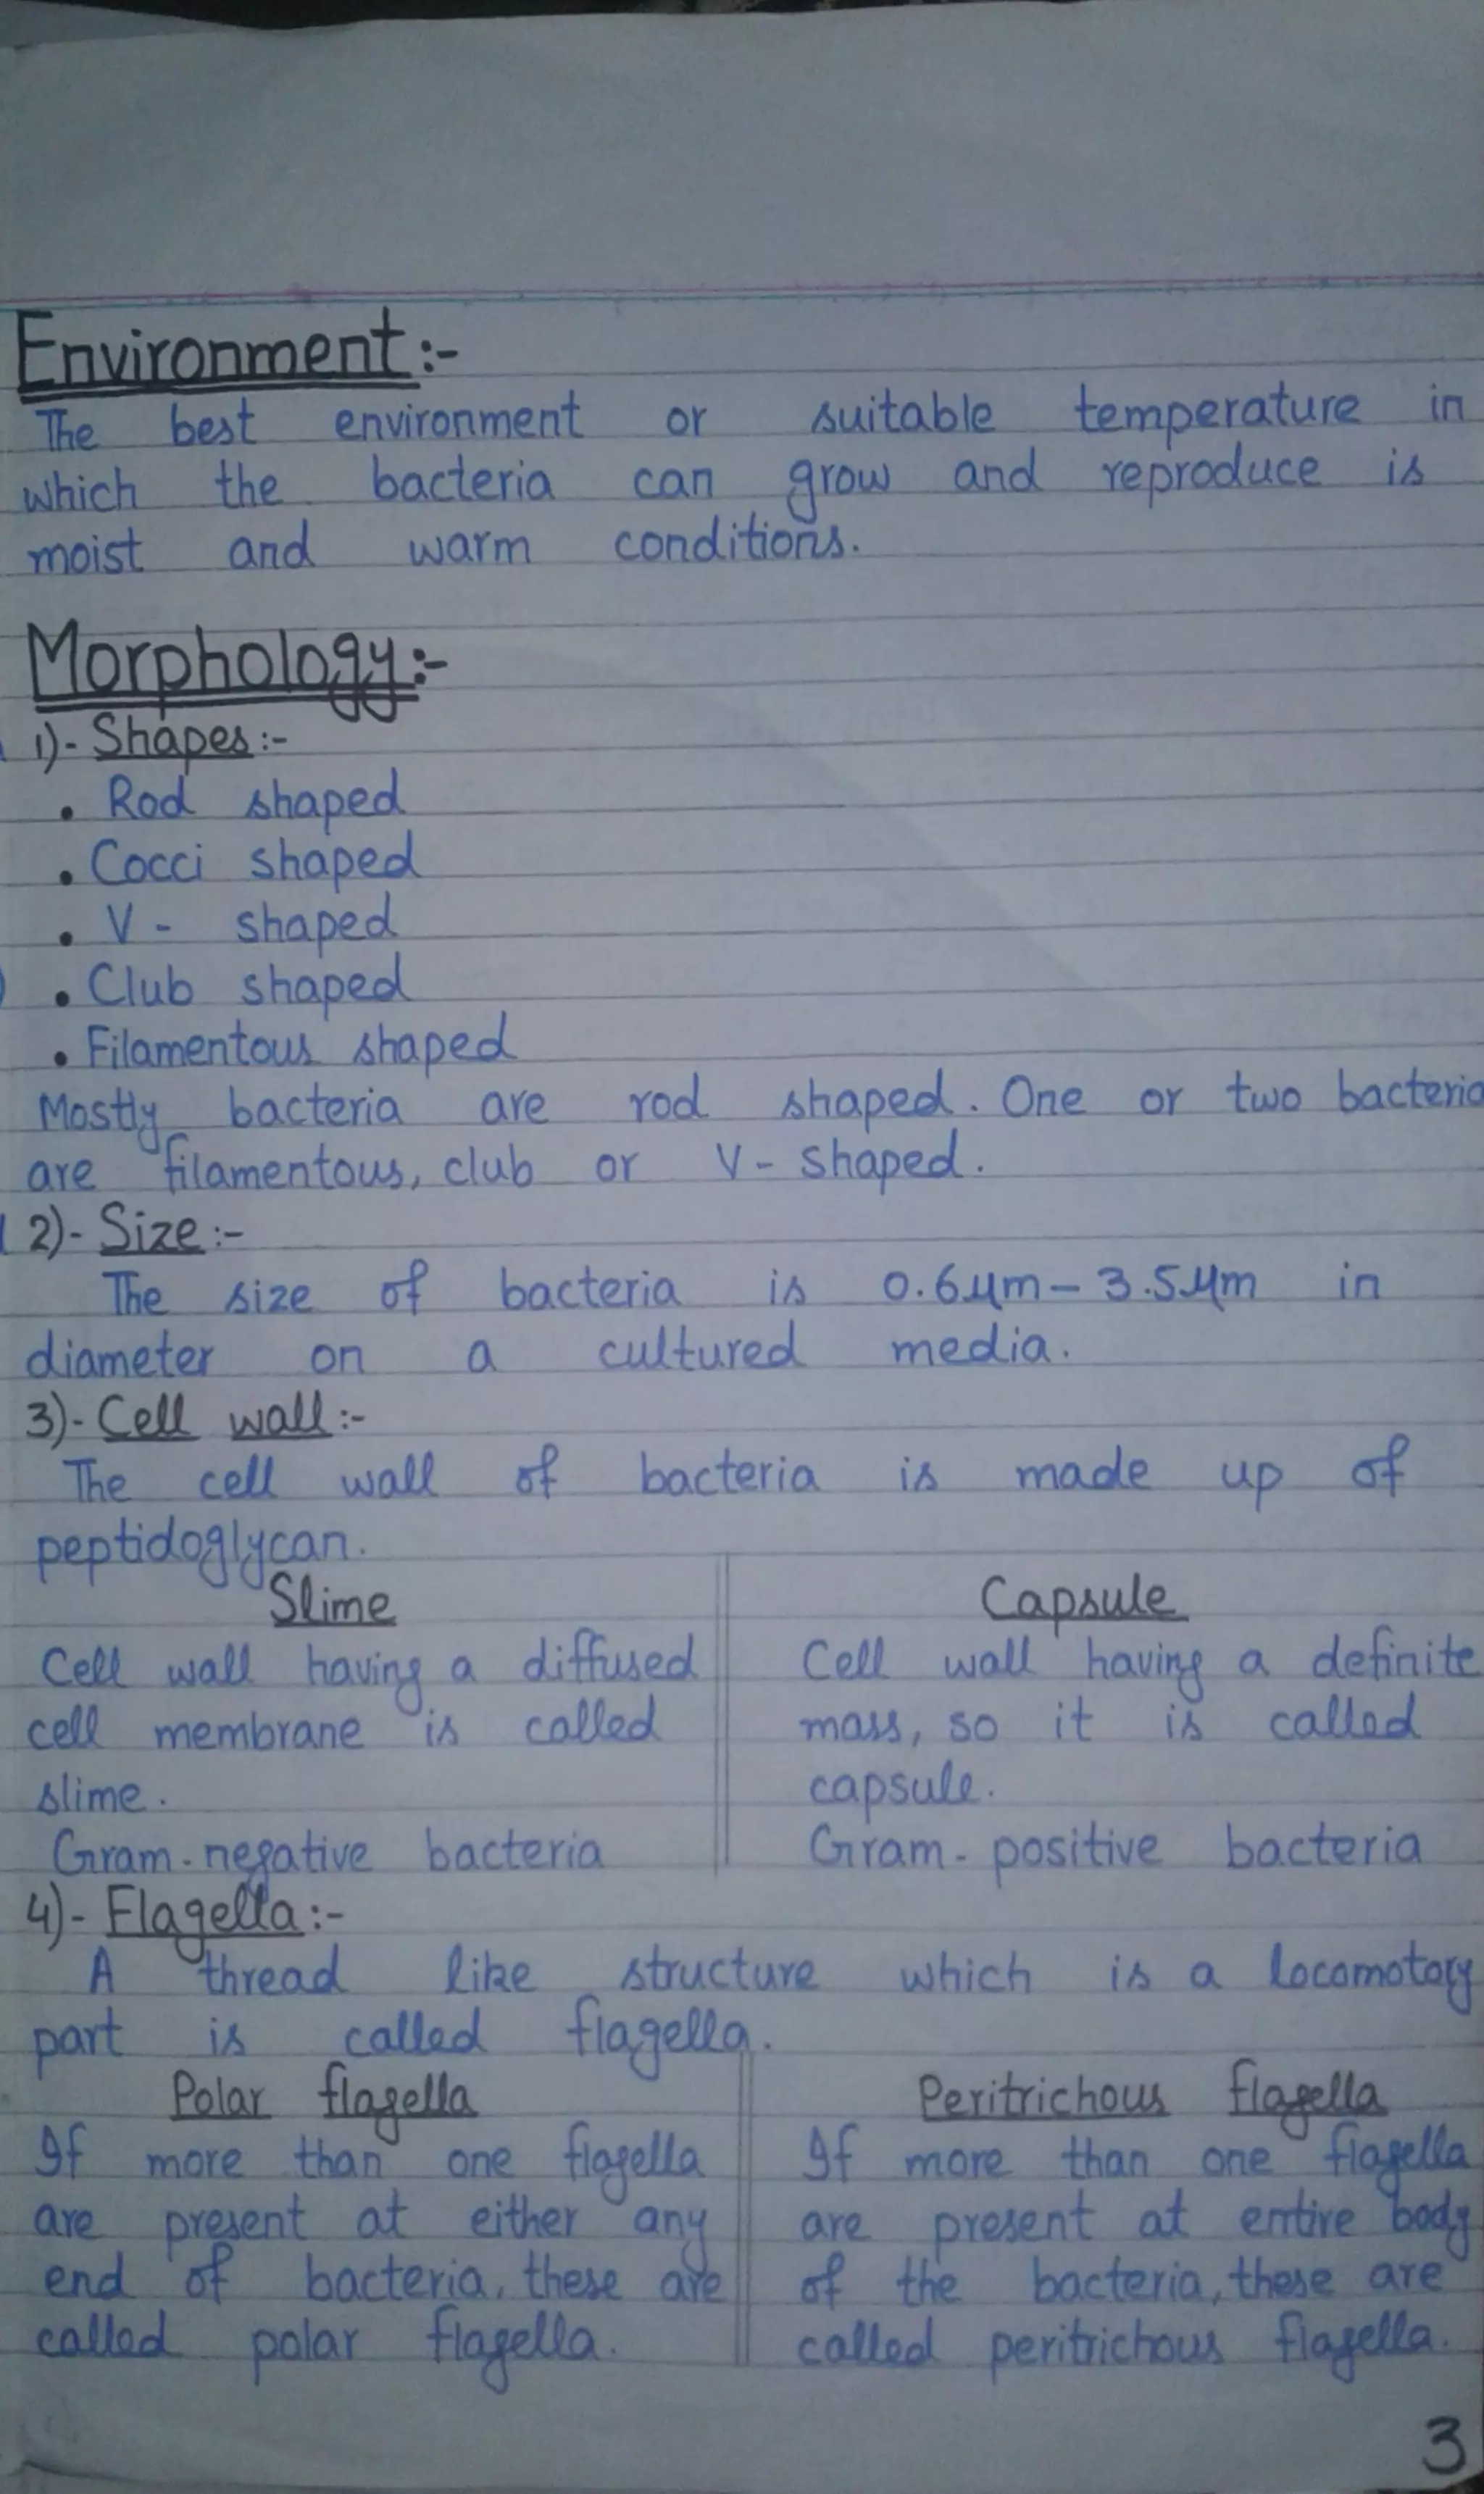 Environment:-
The best environment or suitable temperature in
which the bacteria can grow and reproduce is
moist and warm conditions.
Morphology:-
1)- Shapes:-
• Rod shaped
• Cocci shaped
• V- shaped
• Club shaped
• Filamentous shaped
Mostly bacteria are rod shaped. One or two bacteria
are filamentous, club or V- shaped.
2)- Size:-
The size of bacteria is 0.6μm- 3.5μm in
diameter on a cultured media.
3)- Cell wall:-
The cell wall of bacteria is made up of
peptidoglycan.
Slime
Cell wall having a diffused
cell membrane is called
slime.
Gram-negative bacteria
Capsule
Cell wall having a definite
mass, so it is called
capsule.
Gram- positive bacteria
4)- Flagella:-
A thread like structure which is a locomotory
part is called flagella.
Polar flagella
If more than one flagella
are present at either any
end of bacteria, these are
called polar flagella.
Peritrichous flagella
If more than one flagella
are present at entire body
of the bacteria, these are
called peritrichous flagella.
3